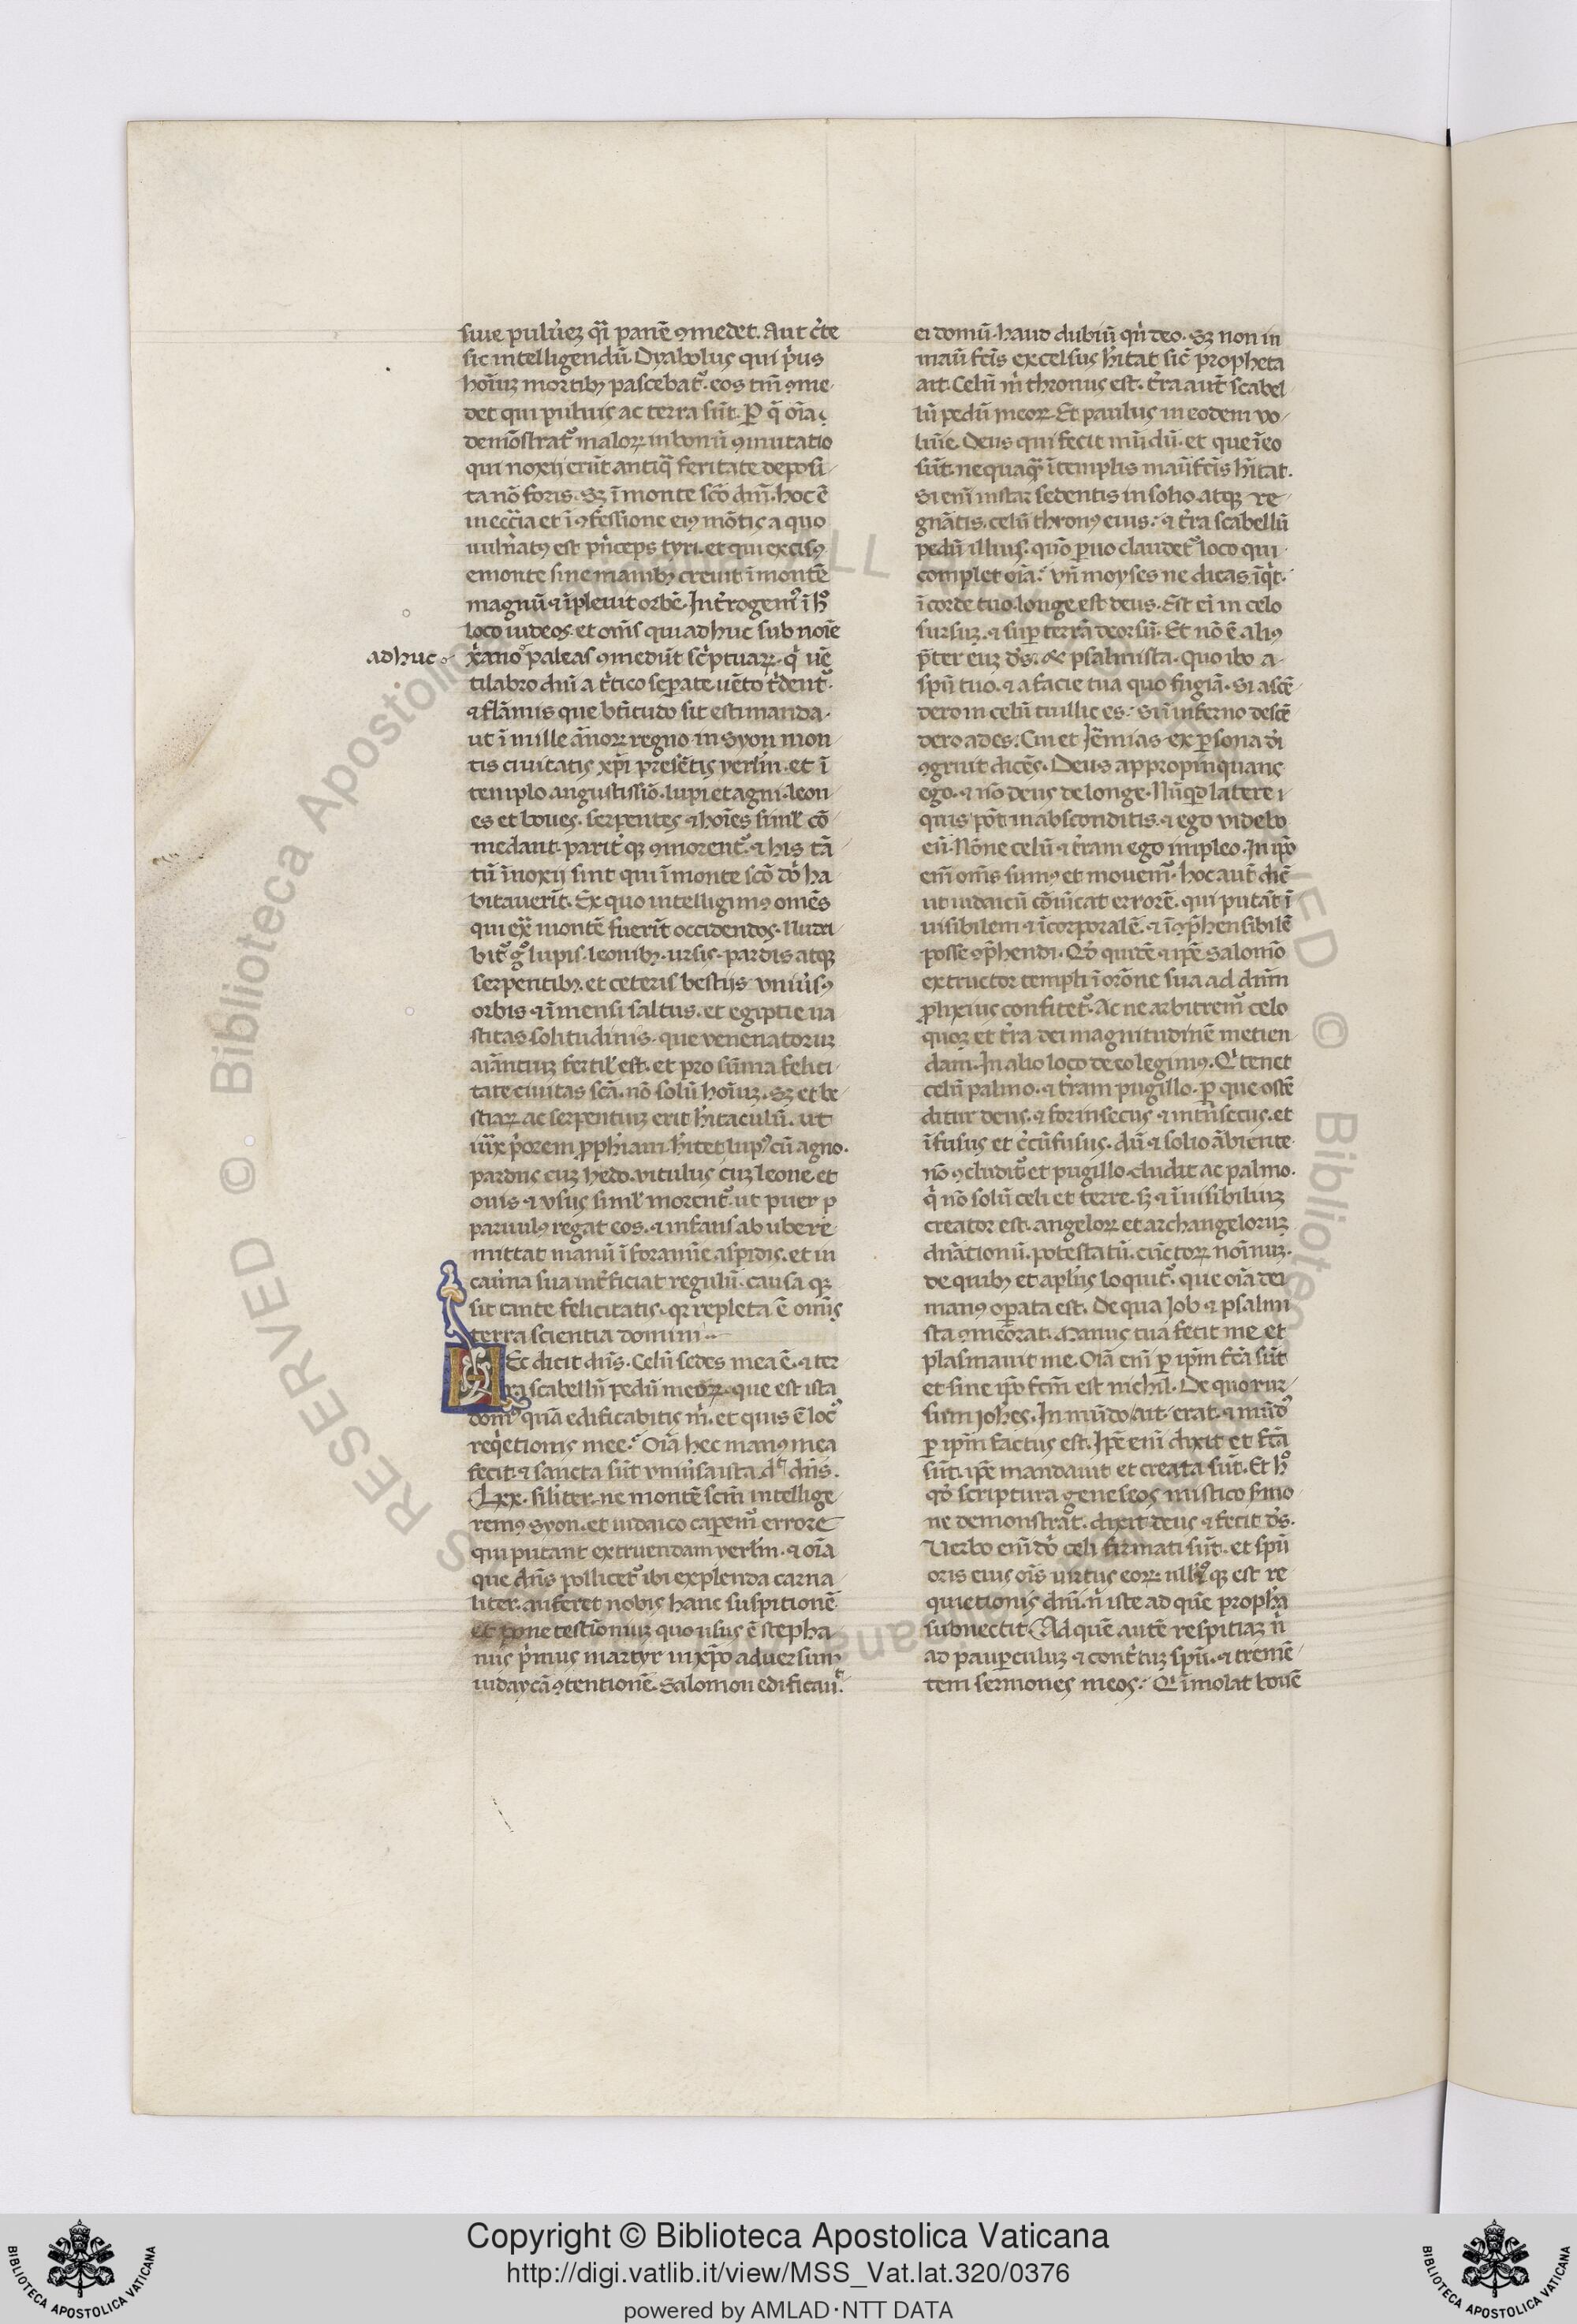 siue puluerꝫ q̄i panē ꝯmedet. Aut c̓te
sic intelligendū Dyabolus qui p̓us
hoīuꝫ mortibꝫ pascebat᷑. eos tm̄ ꝯme
det qui puluis ac terra sūt. P̱ q̄ oīa
demōstrat᷑ maloꝝ in bonū ꝯmutatio
qui noxij erūt antiq̄ feritate deposi
ta nō foris. Sꝫ ī monte sc̄o dn̄i. hoc ē
in ecc̄ia et ī ꝯfessione eiꝰ mōtis a quo
uuln̓atꝰ est p̓nceps tyri. et qui excisꝰ
e monte sine manibꝫ creuit ī montē
magnū ⁊ īpleuit orbē. Int̓rogemꝰ ī hͦ
loco iudeos. et om̄s qui adhuc sub noīe
adhuc
x̄ano paleas ꝯmedūt sc̓pturaꝝ. q̓ uē
tilabro dn̄i a t̓tico sepate uēto t̓dent᷑.
⁊ flāmis que bt̄itudo sit estimanda.
ut ī mille ānoꝝ regno in Syon mon
tis ciuitatis xp̄i presētis yerlm̄. et ī
templo angustissīo. lupi et agni. leon
es et boues. serpentes ⁊ hoīes siml̓ cō
medant. parit̓ qꝫ ꝯmorent᷑. ⁊ his tā
tū īnoxij sint qui ī monte sc̄o dn̄i ha
bitauerīt. Ex quo intelligimꝰ omēs
qui ex̄ montē fuerīt occidendos. Nutri
bit᷑ g̊ lupis. leonibꝫ. ursis. pardis atqꝫ
serpentibꝫ. et ceteris bestijs vniūsꝰ
orbis ⁊ īmensi saltus. et egiptie ua
stitas solitudinis. que venenatoruꝫ
aīantiuꝫ fertil̓ est. et pro sūma felici
tate ciuitas sc̄a. nō solū hoīuꝫ. sꝫ et be
stiaꝝ ac serpentiuꝫ erit h̓itaculū. ut
iux̄ p̓orem p̱ph̄iam. h̓itet lupꝰ cū agno.
pardus cuꝫ hedo. vitulus cuꝫ leone et
ouis ⁊ vrsus siml̓ morent᷑. ut puer p
paruulꝰ regat eos. ⁊ infans ab ubere
mittat manū ī foramīe aspidis. et in
cauerna sua int̓ficiat regulū. causa qꝫ
sit tante felicitatis. qꝛ repleta ē om̄is
terra scientia domini
HEc dicit dn̄s. Celū sedes mea ē. ⁊ ter
ra scabellū pedū meoꝝ. que est ista
domꝰ quā edificabitis m̓. et quis ē locꝰ
req̓etionis mee? Oīa hec manꝰ mea
fecit. ⁊ sancta sūt vniūsa ista. d̓t dn̄s.
Lxx. silīter. ne montē scm̄ intellige
remꝰ Syon. et iudaico caperem᷑ errore
qui putant extruendam yerlm̄. ⁊ oīa
que dn̄s pollicet᷑ ibi explenda carna
liter. auferet nobis hanc suspitionē
et pone testīoniuꝫ quo usus ē stepha
nus p̓mus martyr in xp̄o aduersum
iudaycā ꝯtentionē. Salomon edificau᷑
ei domū. haud dubiū qn̓ deo. Sꝫ non in
manū fc̄is excelsus h̓itat sic̄ propheta
ait. Celū m̓ thronus est. t̓ra aut̄ scabel
lū pedū meoꝝ. Et paulus in eodem uo
lūīe. Deus qui fecit mūdū. et que ī eo
sūt. nequaq̄ ī templis manūfc̄is h̓itat.
Si enī instar sedentis in solio. atqꝫ re
gnātis. celū thronꝰ eius. ⁊ t̓ra scabellū
pedū illius. quō puo claudet᷑ loco qui
complet oīa? vn̄ moyses ne dicas īq̓t.
ī corde tuo. longe est deus. Est ei in celo
sursuꝫ. ⁊ sup terrā deorsū. Et nō ē aliꝰ
p̄ter euꝫ d̓s. & psalmista. quo ibo a
spū tuo. ⁊ a facie tua quo fugiā. Si ascē
dero in celū tu illic es. Si ī inferno descē
dero ades. Cui et Jēmias ex psona dī
ꝯgruit dicēs. Deus appropinquans
ego. ⁊ nō deus de longe. Nūqd̓ latere
quis pōt in absconditis. ⁊ ego videbo
eū. Nōne celū ⁊ t̓ram ego impleo. In ip̄o
em̄ om̄s sumꝰ et mouem᷑. hoc aut̄ dicē
ut iudaicū cōuīcat errorē. qui putāt ī
uisibilem ⁊ īcorporalē. ⁊ īꝯp̄hensibilē
posse ꝯp̄hendi. Qd̓ quidē ⁊ ip̄e Salomō
extructor templi ī orōne sua ad dn̄m
plixius confitet᷑. Ac ne arbitrem᷑ celo
quoꝫ et t̓ra dei magnitudinē metien
dam. In alio loco de eo legimꝰ. Qͥ tenet
celū palmo. ⁊ t̓ram pugillo. p que ostē
ditur deus. ⁊ forinsecus ⁊ int̓nsecus. et
īfusus et c̓cūfusus. dū ⁊ solio ābiente
nō ꝯcludit᷑ et pugillo cludit ac palmo.
q̓ nō solū celi et terre. sꝫ ⁊ īuisibiliuꝫ
creator est. angeloꝝ et archangeloruꝫ
dn̄ationū. potestatū. cūctoꝝ noīnuꝫ.
de quibꝫ et apl̓us loquit᷑. que oīa dei
manꝰ operata est. De qua Iob ⁊ psalmi
sta ꝯmeōrat. Manus tua fecit me et
plasmauit me. Oīa enī p ip̄m fc̄a sūt
et sine ip̄o fcm̄ est nichil. De quo rur
sum joh̄es. In mūdo ait erat ⁊ mūdꝰ
p ip̄m factus est. Ip̄e enī dixit et fc̄a
sūt. ip̄e mandauit et creata sūt. Et hͦ
qd̓ scriptura geneseos mistico smo
ne demonstrat᷑. dixit deus ⁊ fecit d̓s.
Verbo enī dn̄i celi firmati sūt. et spū
oris eius oīs uirtus eoꝝ. nllꝰ qꝫ est re
quietionis dn̄i. n̓ iste ad quē proph̄a
subnectit Ad quē autē respiciaꝫ n̓
ad pauperculuꝫ ⁊ cont̓tuꝫ spū. ⁊ tremē
tem sermones meos. Qͥ īmolat bouē
Copyright © Biblioteca Apostolica Vaticana
http://digi.vatlib.it/view/MSS_Vat.lat.320/0376
powered by AMLAD·NTT DATA